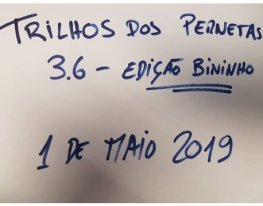 TRILHOS DOS PERNETAS
3.6 - EDIÇÃO BININHO
1 DE MAIO 2019